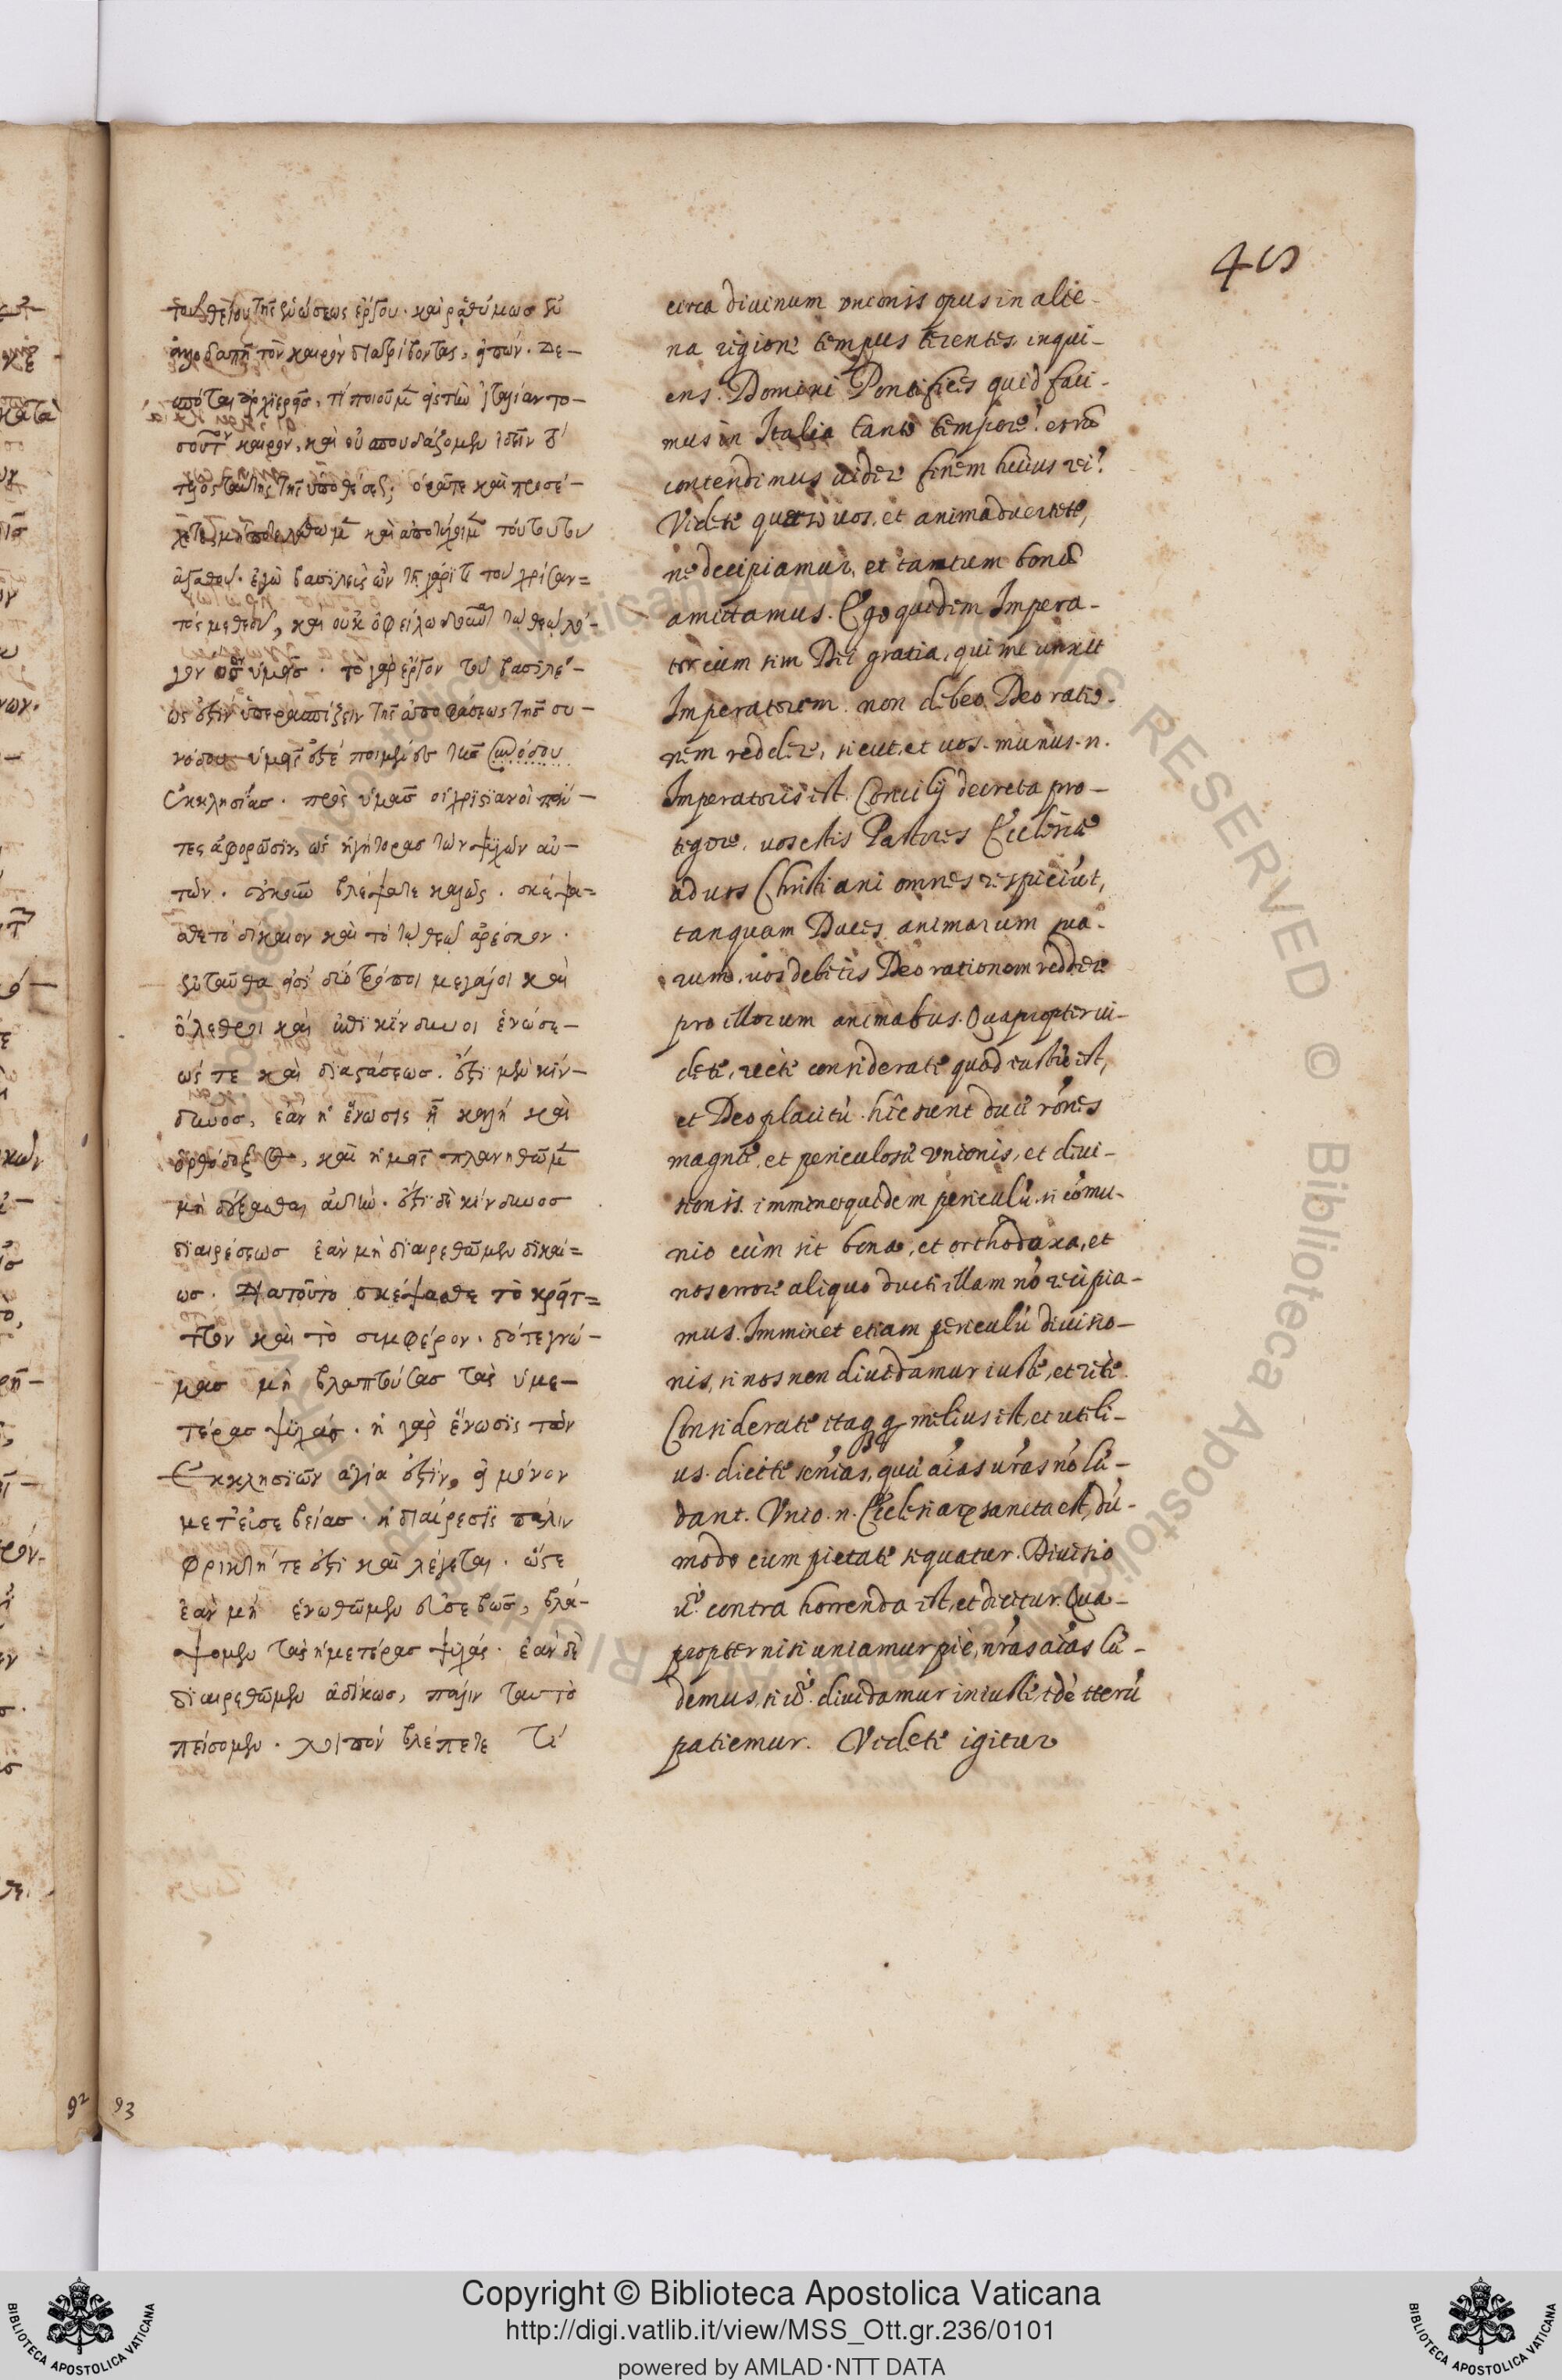 45
τοῦ θείου τῆς ἑνώσεως ἔργου. καὶ ῥαθύμως ἐν
ἀλλοδαπῇ τὸν καιρὸν διατρίβοντας, εἰπών. Δε-
σπόται ἀρχιερεῖς, τί ποιοῦμεν εἰς τὴν ἰταλίαν το-
σοῦτον καιρὸν, καὶ οὐ σπουδάζομεν ἰδεῖν τὸ
τέλος ταύτης τῆς ὑποθέσεως; ὁρᾶτε καὶ προσέ-
ἀγαθοῦ. ἐγὼ βασιλεὺς ὢν τῇ χάριτι τοῦ χρίσαν=
τός με θεοῦ, καὶ οὐκ ὀφείλω δοῦναι τῷ θεῷ λό-
γον ὅσον ὑμεῖς. τὸ γὰρ ἔργον τοῦ βασιλέ-
ως ἐστὶν ὑπερασπίζειν τῆς ἀποφάσεως τῆς συ-
νόδου
Ἐκκλησίας. πρὸς ὑμᾶς οἱ χριστιανοὶ πάν-
τες ἀφορῶσιν, ὡς ἡγήτορας τῶν ψυχῶν αὐ-
τῶν. βλέψατε καλῶς. σκέψα=
σθε τὸ δίκαιον καὶ τὸ τῷ θεῷ ἀρέσκον.
ἐνταῦθα εἰσὶ δύο τρόποι μεγάλοι καὶ
ὀλέθριοι καὶ ἐπικίνδυνοι ἑνώσε-
ώς τε καὶ διαστάσεως. ἔστι μὲν κίν-
δυνος, ἐὰν ἡ ἕνωσις ᾖ καλὴ καὶ
ὀρθόδοξος, καὶ ἡμεῖς πλανηθῶμεν
μὴ δέξασθαι αὐτήν. ἔστι δὲ κίνδυνος
διαιρέσεως ἐὰν μὴ διαιρεθῶμεν δικαί=
ως. Διατοῦτο σκέψασθε τὸ κρεῖτ=
τον καὶ τὸ συμφέρον. δότε γνώ-
μας μὴ βλαπτούσας τὰς ὑμε-
τέρας ψυχάς. ἡ γὰρ ἕνωσις τῶν
Ἐκκλησιῶν ἁγία ἐστίν, εἰ μόνον
μετ' εὐσεβείας. ἡ διαίρεσις πάλιν
φρικτή τε ἐστὶ καὶ λέγεται. ὥστε
ἐὰν μὴ ἑνωθῶμεν εὐσεβῶς, βλά-
ψομεν τὰς ἡμετέρας ψυχάς. ἐὰν δὲ
διαιρεθῶμεν ἀδίκως, πάλιν ταυτὸ
πείσομεν. λοιπόν βλέπετε τί
circa divinum unionis opus in alie-
na regione tempus terentes, inqui-
ens. Domini Pontifices quid faci-
mus in Italia tanto tempore? et nō
contendimus videre finem huius rei?
Videte quaeso vos, et animadvertite,
ne decipiamur, et tantum bonū
amittamus. Ego quidem Impera-
tor cum sim Dei gratia, qui me unxit
Imperatorem. non debeo Deo ratio-
nem reddere, sicut, et vos. munus .n.
Imperatoris est. Concilij decreta pro-
tegere. vos estis Pastores Ecclesiae
ad vos Christiani omnes respiciūt,
tanquam Duces animarum sua-
rum. vos debetis Deo rationem reddere
pro illorum animabus. Quapropter vi-
dete, recte considerate quod iustū est,
et Deo placitū. hic sunt duae rōnes
magnae, et periculosae unionis, et divi-
sionis. imminet quidem periculū. si cōmu-
nio cùm sit bona, et orthodoxa, et
nos errore aliquo ducti illam nō recipia-
mus. Imminet etiam periculū divisio-
nis, si nos non dividamur iuste, et rite.
Considerate itaq; q melius est, et utili-
us. dicite sēnias, quae aīas vrās nō lae-
dant. Unio .n. Ecclesiarum sancta est, dū-
modo cum pietate sequatur. Divisio
v̄o. contra horrenda est, et dicitur. Qua-
propter nisi uniamur piè, nrās aīas lae-
demus, si v̄o. dividamur iniustè, idē iterū
patiemur. Videte igitur
92
93
Copyright © Biblioteca Apostolica Vaticana
http://digi.vatlib.it/view/MSS_Ott.gr.236/0101
powered by AMLAD·NTT DATA
BIBLIOTECA APOSTOLICA VATICANA
BIBLIOTECA APOSTOLICA VATICANA